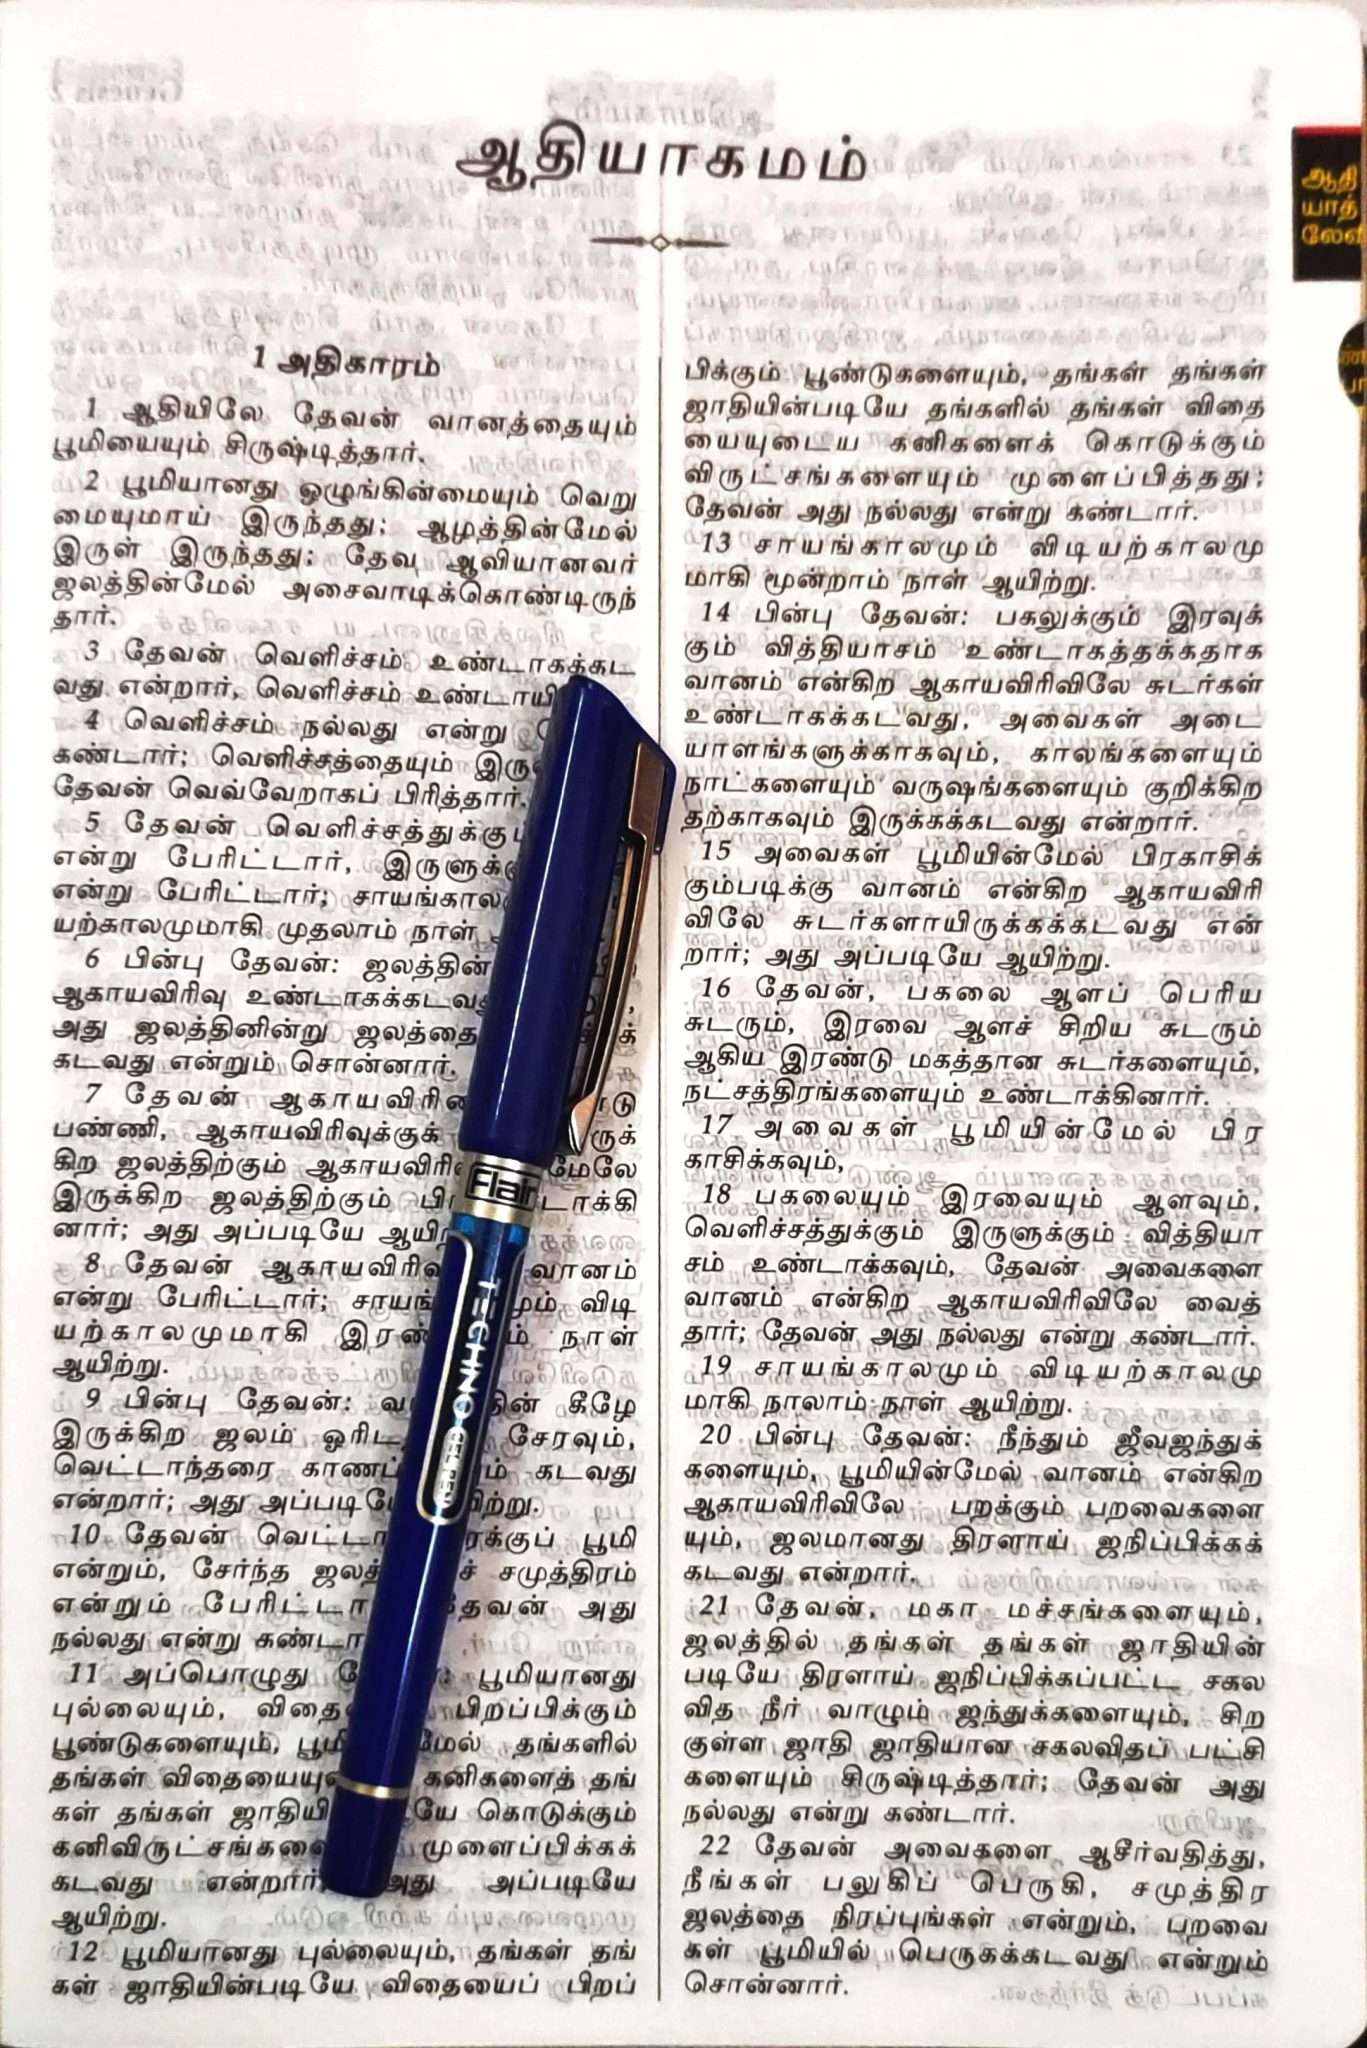 ஆதியாகமம்
1 அதிகாரம்
1 ஆதியிலே தேவன் வானத்தையும்
பூமியையும் சிருஷ்டித்தார்.
2 பூமியானது ஒழுங்கின்மையும் வெறு
மையுமாய் இருந்தது; ஆழத்தின்மேல்
இருள் இருந்தது; தேவ ஆவியானவர்
ஜலத்தின்மேல் அசைவாடிக்கொண்டிருந்
தார்.
3 தேவன் வெளிச்சம் உண்டாகக்கட
வது என்றார், வெளிச்சம்
4 வெளிச்சம் நல்லது என்று
கண்டார்; வெளிச்சத்தையும்
தேவன் வெவ்வேறாகப் பிரித்தார்.
5 தேவன்
என்று பேரிட்டார்,
என்று பேரிட்டார்;
யற்காலமுமாகி முதலாம் நாள்
6 பின்பு தேவன்:
ஆகாயவிரிவு
அது ஜலத்தினின்று
கடவது என்றும் சொன்னார்.
7 தேவன்
பண்ணி,
கிற ஜலத்திற்கும் மேலே
இருக்கிற ஜலத்திற்கும்
னார்; அது அப்படியே
8 தேவன் வானம்
என்று பேரிட்டார்; விடி
யற்காலமுமாகி நாள்
ஆயிற்று.
9 பின்பு தேவன்: கீழே
இருக்கிற ஜலம் சேரவும்,
வெட்டாந்தரை கடவது
என்றார்; அது
10 தேவன் பூமி
என்றும், சேர்ந்த சமுத்திரம்
என்றும் தேவன் அது
நல்லது என்று
11 அப்பொழுது பூமியானது
புல்லையும், பிறப்பிக்கும்
பூண்டுகளையும், தங்களில்
தங்கள் கனிகளைத் தங்
கள் தங்கள் கொடுக்கும்
முளைப்பிக்கக்
கடவது என்றார்; அது அப்படியே
ஆயிற்று.
12 பூமியானது புல்லையும், தங்கள் தங்
கள் ஜாதியின்படியே விதையைப் பிறப்
பிக்கும் பூண்டுகளையும், தங்கள் தங்கள்
ஜாதியின்படியே தங்களில் தங்கள் விதை
யையுடைய கனிகளைக் கொடுக்கும்
விருட்சங்களையும் முளைப்பித்தது;
தேவன் அது நல்லது என்று கண்டார்.
13 சாயங்காலமும் விடியற்காலமு
மாகி மூன்றாம் நாள் ஆயிற்று.
14 பின்பு தேவன்: பகலுக்கும் இரவுக்
கும் வித்தியாசம் உண்டாகத்தக்கதாக
வானம் என்கிற ஆகாயவிரிவிலே சுடர்கள்
உண்டாகக்கடவது, அவைகள் அடை
யாளங்களுக்காகவும், காலங்களையும்
நாட்களையும் வருஷங்களையும் குறிக்கிற
தற்காகவும் இருக்கக்கடவது என்றார்.
15 அவைகள் பூமியின்மேல் பிரகாசிக்
கும்படிக்கு வானம் என்கிற ஆகாயவிரி
விலே சுடர்களாயிருக்கக்கடவது என்
றார்; அது அப்படியே ஆயிற்று.
16 தேவன், பகலை ஆளப் பெரிய
சுடரும், இரவை ஆளச் சிறிய சுடரும்
ஆகிய இரண்டு மகத்தான சுடர்களையும்,
நட்சத்திரங்களையும் உண்டாக்கினார்.
17 அவைகள் பூமியின்மேல் பிர
காசிக்கவும்,
18 பகலையும் இரவையும் ஆளவும்,
வெளிச்சத்துக்கும் இருளுக்கும் வித்தியா
சம் உண்டாக்கவும், தேவன் அவைகளை
வானம் என்கிற ஆகாயவிரிவிலே வைத்
தார்; தேவன் அது நல்லது என்று கண்டார்.
19 சாயங்காலமும் விடியற்காலமு
மாகி நாலாம் நாள் ஆயிற்று.
20 பின்பு தேவன்: நீந்தும் ஜீவஜந்துக்
களையும், பூமியின்மேல் வானம் என்கிற
ஆகாயவிரிவிலே பறக்கும் பறவைகளை
யும், ஜலமானது திரளாய் ஜநிப்பிக்கக்
கடவது என்றார்.
21 தேவன், மகா மச்சங்களையும்,
ஜலத்தில் தங்கள் தங்கள் ஜாதியின்
படியே திரளாய் ஜநிப்பிக்கப்பட்ட சகல
வித நீர் வாழும் ஜந்துக்களையும், சிற
குள்ள ஜாதி ஜாதியான சகலவிதப் பட்சி
களையும் சிருஷ்டித்தார்; தேவன் அது
நல்லது என்று கண்டார்.
22 தேவன் அவைகளை ஆசீர்வதித்து,
நீங்கள் பலுகிப் பெருகி, சமுத்திர
ஜலத்தை நிரப்புங்கள் என்றும், பறவை
கள் பூமியில் பெருகக்கடவது என்றும்
சொன்னார்.
ஆதி
யாத்
லேவி
Flair
TECHNO
GEL PEN